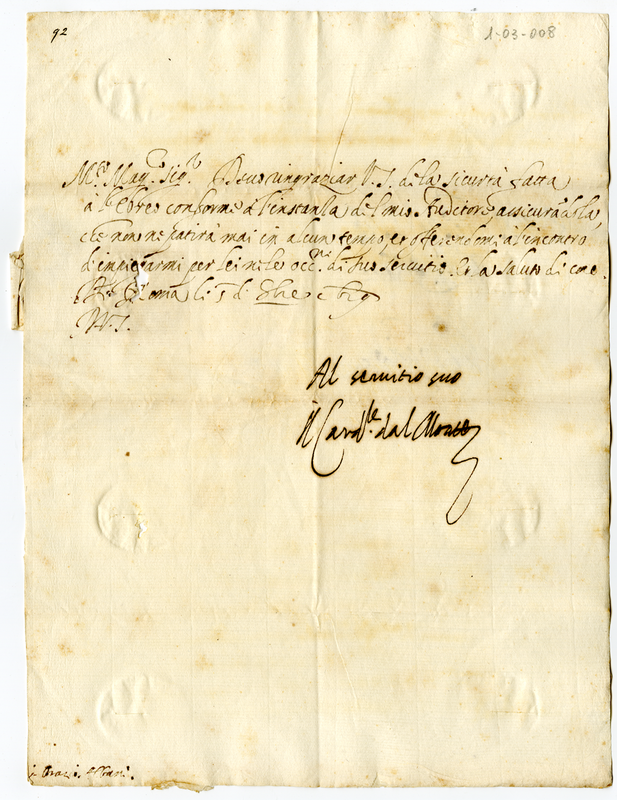 92
1-03-008
M.to Mag.co Sig.r Devo ringratiar V.S. de la sicurtà fatta
a l'Ebreo conforme à l'instanza del mio Auditore, assicurādola,
che non ne patirà mai in alcun tempo, et offerendomi à l'incontro
d'impiegarmi per lei ne le occ.ni di suo servitio. Et la saluto di core.
Di Roma li 5 di
V.S.
Al servitio suo
Il Card.le dal Monte